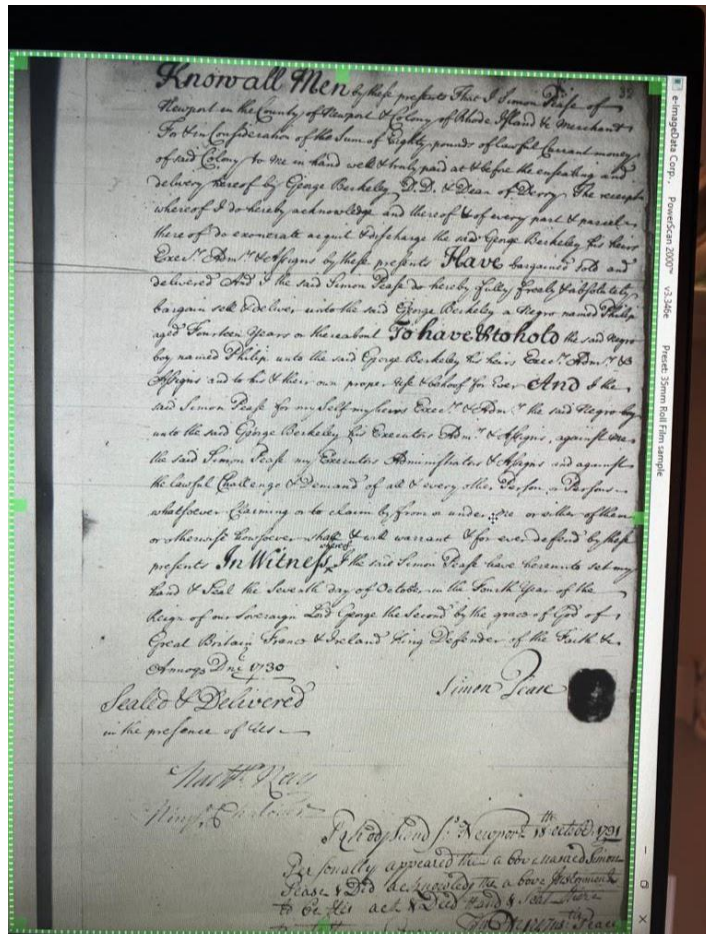 32
Know all Men by these presents That I Simon Pease of
Newport in the County of Newport & Colony of Rhode Island &c Merchant
For & in Consideration of the Sum of Eighty pounds of lawful Currant money
of said Colony to me in hand well & truly paid at & before the ensealing and
delivery hereof by George Berkeley D.D. & Dean of Derry The receipt
whereof I do hereby acknowledge and thereof & of every part & parcel
thereof do exonerate acquit & discharge the said George Berkeley his heirs
Execrs. Admrs. & Assigns by these presents Have bargained sold and
delivered And I the said Simon Pease do hereby fully freely & absolutely
bargain sell & deliver unto the said George Berkeley a Negro named Philip
aged Fourteen Years or thereabout To have & to hold the said Negro
boy named Philip unto the said George Berkeley his heirs Execrs. Admrs. &
Assigns and to his & their own proper use & behoof for Ever And I the
said Simon Pease for my Self my heirs Execrs. & Admrs. the said Negro boy
unto the said George Berkeley his Executors Admrs. & Assigns, against me
the said Simon Pease my Executors Administrators & Assigns and against
the lawful Challenge & Demand of all & every other Person or Persons
whatsoever Claiming or to claim by from or under me or either of them
or otherwise howsoever shall & will warrant & for ever defend by these
presents In Witness whereof I the said Simon Pease have hereunto set my
hand & Seal the Seventh day of October in the Fourth Year of the
Reign of our Sovereign Lord George the Second by the grace of God of
Great Britain France & Ireland King Defender of the Faith &c
Annoqe Dni 1730
Simon Pease
Sealed & Delivered
in the presence of Us
Rhod Island ss Newport 18th octobr 1731
Personally appeared the above named Simon
Pease & Did acknowledg the above Instrument
to be His act & Deed Hand & Seal
e-ImageData Corp., PowerScan 2000™ v3.346e Preset: 35mm Roll Film sample